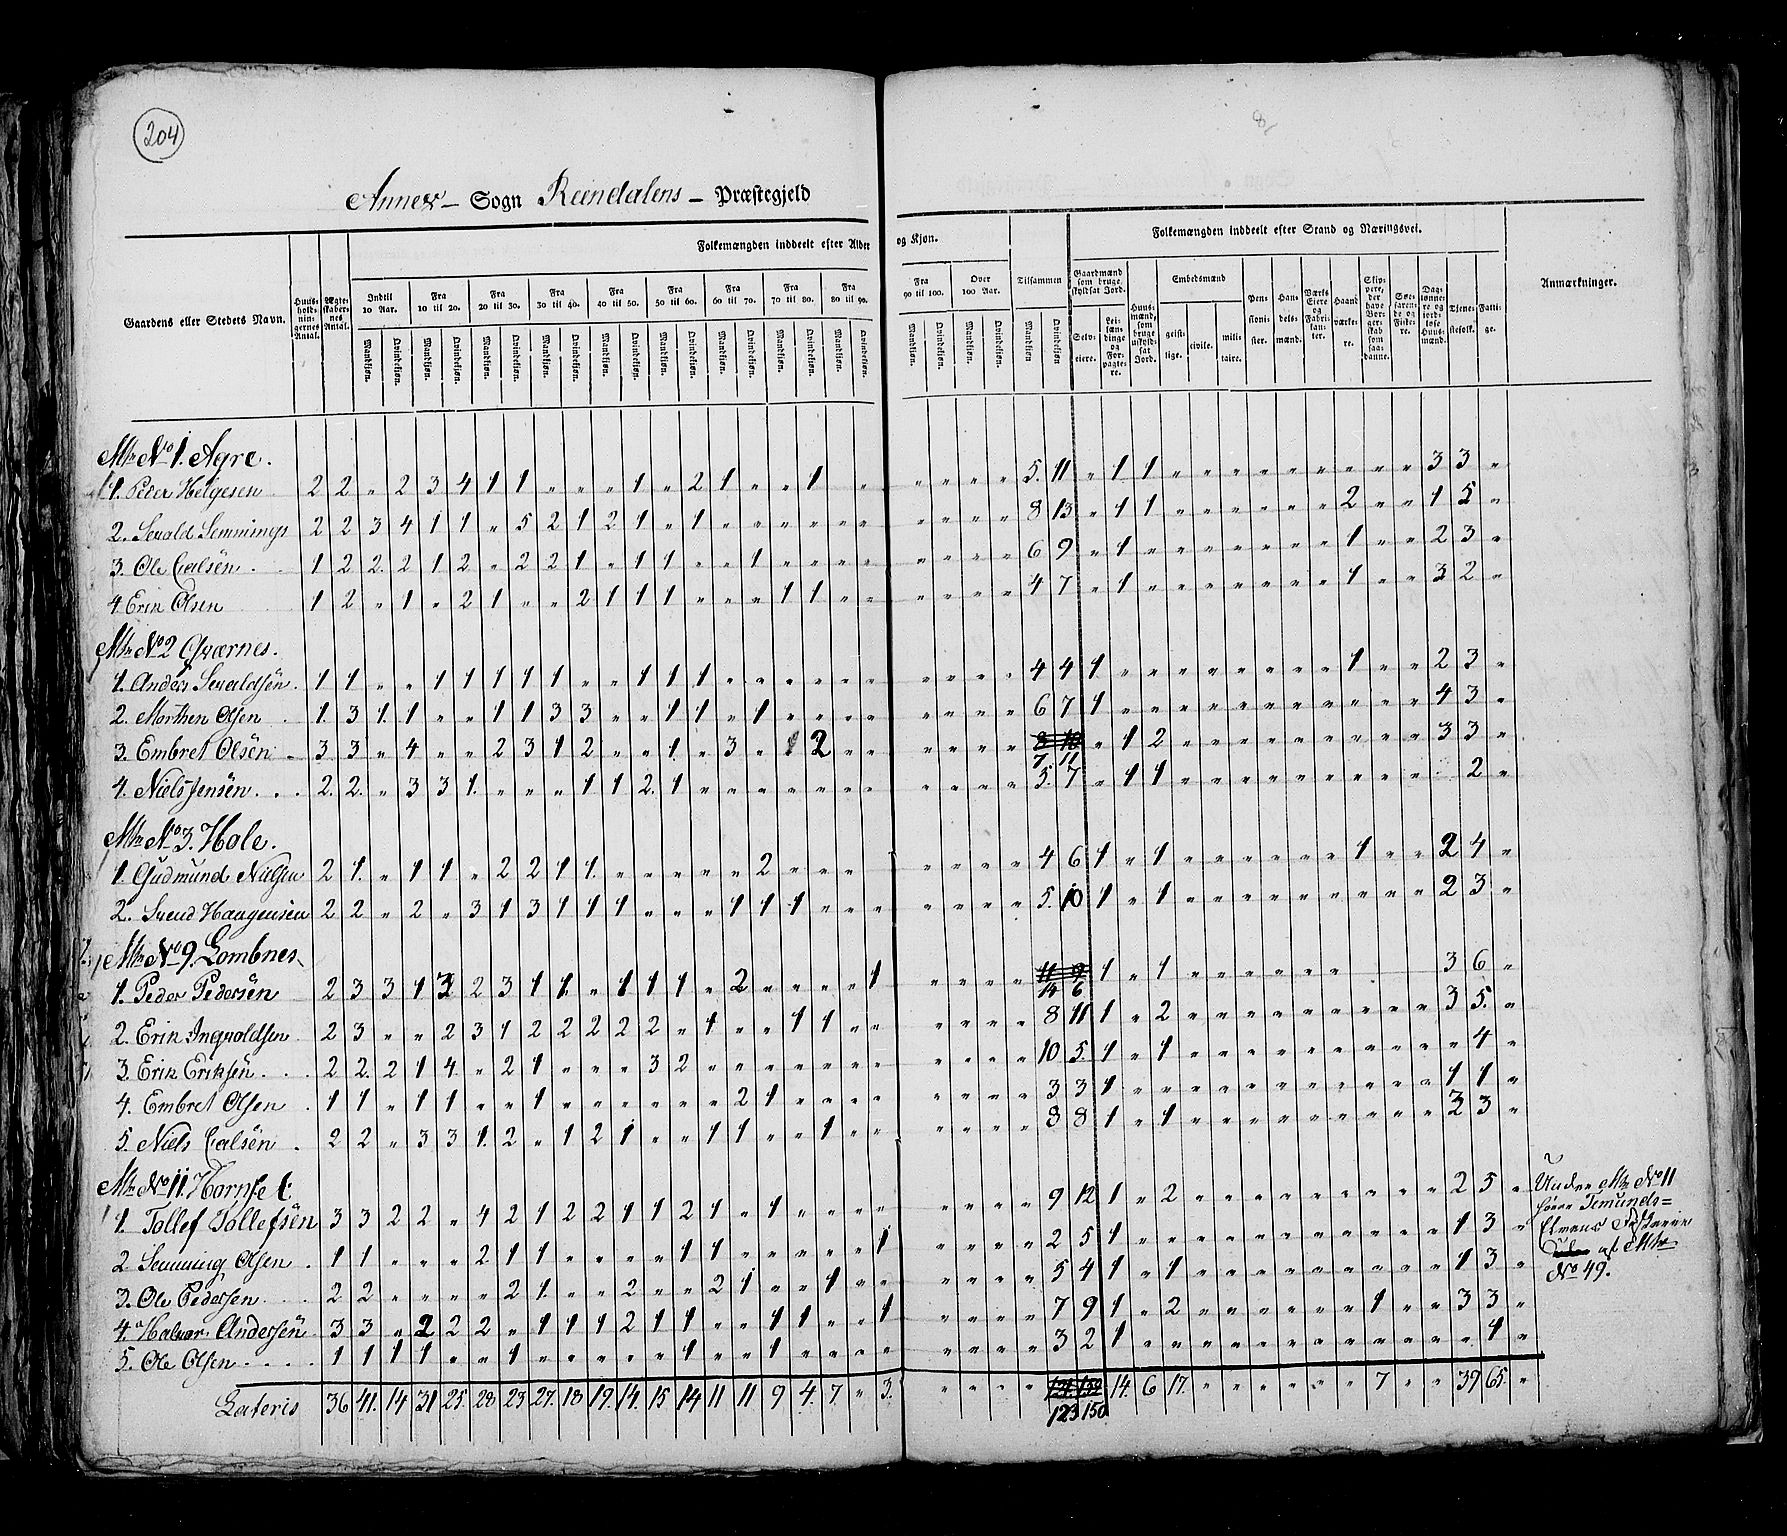 204
8
Annex – Sogn Reendalens – Præstegjeld
Gaardens eller Stedets Navn.
Huus-holdnin-gernes Antal.
Ægte-skaber-nes Antal.
Folkemængden inddeelt efter Alder og Kjøn.
Indtil 10 Aar. Fra 10 til 20. Fra 20 til 30. Fra 30 til 40. Fra 40 til 50. Fra 50 til 60. Fra 60 til 70. Fra 70 til 80. Fra 80 til 90. Fra 90 til 100. Over 100 Aar. Tilsammen
Mandkjøn. Qvindekjøn.
Folkemængden inddeelt efter Stand og Næringsvei.
Gaardmænd som bruge skyldsat Jord.
Selv-eiere. Lei-lændinge og For-pagte-re.
Huus-mænd, som bruge uskyld-sat Jord.
Embedsmænd
geist-lige. civile. mili-taire.
Pen-sioni-ster.
Han-dels-mænd.
Værks Eiere og Fabri-kan-ter.
Haand-værke-re.
Skip-pere, der have Bor-ger-skab som saa-danne.
Søe-faren-de og Fiske-re.
Dag-lønne-re og jord-løse Huus-mænd.
Tjene-stefolk.
Fatti-ge.
Anmærkninger.
Mtr No 1. Agre.
1. Peder Helgesen 2 2 „ 2 3 4 1 1 „ „ „ 1 „ 2 1 „ „ 1 „ „ „ „ „ 5. 11 „ 1 1 „ „ „ „ „ „ „ „ „ 3 3 „
2. Sevald Semmings 2 2 3 4 1 1 „ 5 2 1 2 1 „ 1 „ „ „ „ „ „ „ „ „ „ 8 13 „ 1 1 „ „ „ „ „ „ 2 „ „ 1 5 „
3. Ole Calsen 1 2 2 2 1 2 „ 2 2 1 „ 1 1 „ „ 1 „ „ „ „ „ „ „ „ 6 9 „ 1 „ „ „ „ „ „ „ 1 „ „ 2 3 „
4. Erik Olsen 1 2 „ 1 „ 2 1 „ „ 2 1 1 1 „ „ „ 1 1 „ „ „ „ „ „ 4 7 „ 1 „ „ „ „ „ „ „ 1 „ „ 3 2 „
Mtr No 2 Qværnes.
1. Anders Sevaldsen. 1 1 „ „ 1 1 1 1 1 „ „ 1 1 1 „ „ „ „ „ „ 4 4 1 „ „ „ „ „ „ „ „ 1 „ „ 2 3 „
2. Morthen Olsen 1. 3 1. 1 „ „ 1 1 3 3 „ „ 1 1 „ 1 „ „ „ „ „ „ „ „ 6 7 1 „ „ „ „ „ „ „ „ „ „ „ 4 3 „
3. Embret Olsen 3 3 „ 4 „ „ 2 3 1 2 „ „ 1. „ 3 „ 1 2 „ „ „ „ „ „ 8 10 7 11 „ 1 2 „ „ „ „ „ „ „ „ „ 3 3 „
4. Niels Jensen 2. 2. „ 3 3 1. „ „ „ 1 1 2. 1 „ „ „ „ „ „ „ „ „ „ „ 5. 7 „ 1 1 „ „ „ „ „ „ „ „ „ 2 „
Mtr No 3. Hole.
1. Gudmund Nielsen 2 1. „ 1 1 „ 2 2 1 1. „ „ „ „ „ 2 „ „ „ „ „ „ „ 4 6 1 „ 1 „ „ „ „ „ „ 1 „ „ 2 4 „
2. Svend Haagensen 2 2 „ 2 „ 3 1 3 1 1 1 „ „ „ 1 1 1 „ „ „ „ „ „ „ 5. 10 1 „ 1 „ „ „ „ „ „ „ „ „ 2 3 „
Mtr No 9. Lombnes
1. Peder Pedersen 2 3 3 1 3 2 3 1 1. „ 1 1 1 „ 2 „ „ „ „ 1 „ „ „ „ 11 9 14 6 1 „ 1 „ „ „ „ „ „ 3 6 „
2. Erik Ingvoldsen 2 3 „ „ 2 3 1 2 2 2 2 2 „ 1 „ „ 1 1 „ „ „ „ „ „ 8 11 1 „ 2 „ „ „ „ „ „ „ „ „ 3 5. „
3. Erik Eriksen 2 2. 2 1 4 „ 2 1 „ „ „ 3 2 „ „ „ „ „ „ „ „ „ „ 10 5. 1 „ 1 „ „ „ „ „ „ „ „ „ „ 4 „
4. Embret Olsen 1 1 „ 1 1 „ „ 1 „ „ „ „ „ „ 2 1 „ „ „ „ „ „ „ „ 3 3 1 „ „ „ „ „ „ „ „ „ „ „ 1 1 „
5. Niels Calsen 2 2 „ 3 3 1. 2 „ 1 2 1 „ „ 1 1 „ „ 1 „ „ „ „ „ „ 8 8 1 „ 1 „ „ „ „ „ „ „ „ „ 2 3 „
Mtr No 11. Hornset.
1. Tollef Tollefsen 3 3 2 2 „ 4 2 1 2 2 1 1 2 1 „ 1 „ „ „ „ „ „ „ „ 9 12 1 „ 2 „ „ „ „ „ „ „ „ „ 2 5 „
2. Semming Olsen 1 1 „ „ „ 2 1 1 „ „ „ „ 1 1 „ „ „ „ „ 1 „ „ „ „ 2 5 1 „ „ „ „ „ „ „ „ „ „ „ 1 3 „
3. Ole Pedersen 2 2 „ „ „ „ 2 1. „ „ 2 „ „ 2 1 „ „ 1 „ „ „ „ „ „ 5 4 1 „ 1 „ „ „ „ „ „ „ „ „ 1 3 „
4. Halvor Andersen 3 3 „ 2 2 2 „ 1 1 1 2 1 1 „ „ 1 1 „ „ 1 „ „ „ „ 7 9 1 „ 2 „ „ „ „ „ „ 1 „ „ 3 3 „
5. Ole Olsen 1 1 1 1 „ „ 1 „ „ „ „ „ 1 „ „ 1 „ „ „ „ „ „ „ „ 3 2 1 „ „ „ „ „ „ „ „ „ „ „ „ 1 „
Under Mtr No 11
hører Femunds=
Elvens
af Mtr
No 49.
Lateris 36 41. 14 31 25. 28 23 27. 18 19. 14. 15 14 11 11 9 4. 7. „ 3. „ „ „ „ 123 150 14. 6 17. „ „ „ „ „ „ 7 „ „ 39 65. „